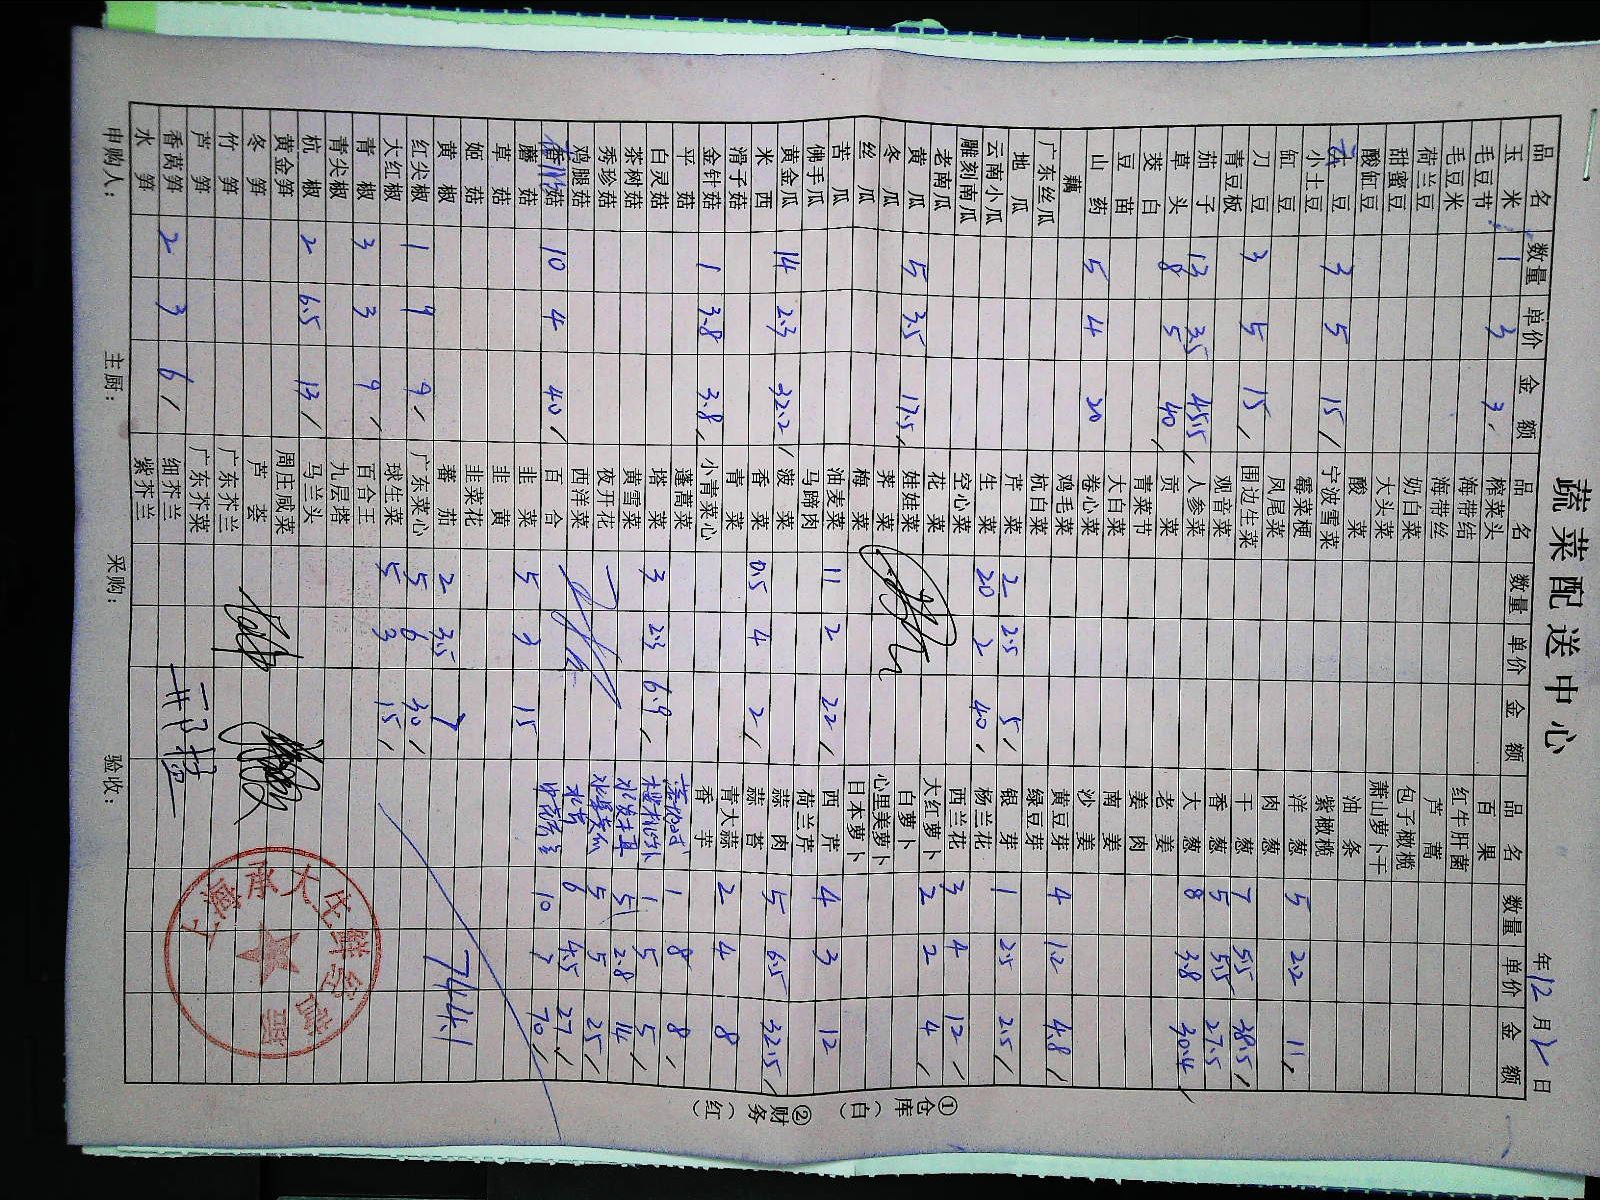 蔬菜配送中心
年 12 月 2 日
品名 数量 单价 金额 品名 数量 单价 金额 品名 数量 单价 金额
玉米 1 3 3 榨菜头 百果
毛豆节 海带结 红牛肝菌
毛豆米 海带丝 芦蒿
荷兰豆 奶白菜 包子橄榄
甜蜜豆 大头菜 萧山萝卜干
酸缸豆 酸菜 油条
土豆 3 5 15 宁波雪菜 紫橄榄
小土豆 霉菜梗 洋葱 5 2.2 11
缸豆 凤尾菜 肉葱
刀豆 3 5 15 围边生菜 干葱 7 5.5 38.5
青豆板 观音菜 香葱 5 5.5 27.5
茄子 13 3.5 45.5 人参菜 大葱 8 3.8 30.4
草头 8 5 40 贡菜 老姜
茭白 青菜节 姜肉
豆苗 大白菜 南姜
山药 5 4 20 卷心菜 沙姜
藕 鸡毛菜 黄豆芽 4 1.2 4.8
广东丝瓜 杭白菜 绿豆芽
地瓜 芹菜 2 2.5 5 银芽 1 2.5 2.5
云南小瓜 生菜 20 2 40 杨兰花
雕刻南瓜 空心菜 西兰花 3 4 12
老南瓜 花菜 大红萝卜 2 2 4
黄瓜 5 3.5 17.5 娃娃菜 白萝卜
冬瓜 荠菜 心里美萝卜
丝瓜 梅菜 日本萝卜
苦瓜 油麦菜 11 2 22 西芹 4 3 12
佛手瓜 马蹄肉 荷兰芹
黄金瓜 14 2.3 32.2 菠菜 蒜肉 5 6.5 32.5
米西 香菜 0.5 4 2 蒜苔
滑子菇 青菜 青大蒜 2 4 8
金针菇 1 3.8 3.8 小青菜心 香芋
平菇 蓬蒿菜 1 8 8
白灵菇 塔菜 3 2.3 6.9 1 5 5
茶树菇 黄雪菜 5 2.8 14
秀珍菇 夜开花 5 5 25
鸡腿菇 西洋菜 6 4.5 27
菇 10 4 40 百合 10 7 70
蘑菇 韭菜 5 3 15
草菇 韭黄
姬菇 韭菜花
黄椒 蕃茄 2 3.5 7 744.1
红尖椒 1 9 9 广东菜心 5 6 30
大红椒 球生菜 5 3 15
青椒 3 3 9 百合王
青尖椒 九层塔
杭椒 2 6.5 13 马兰头
黄金笋 周庄咸菜
冬笋 芦荟
竹笋 广东芥兰
芦笋 广东芥菜
香莴笋 2 3 6 细芥兰
水笋 紫芥兰
申购人： 主厨： 采购： 验收：
①仓库（白） ②财务（红）